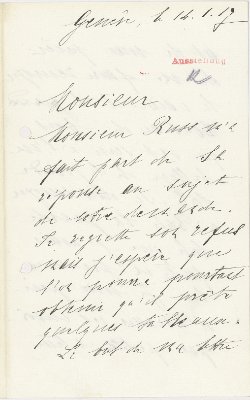 Genève, le 14.1.17
Ausstellung
Monsieur
Monsieur Russ m'a
fait part de sa
réponse au sujet
de votre demande.
Je regrette son refus
mais j'espère que
l'on pourra pourtant
obtenir qu'il prête
quelques tableaux.
Le but de ma lettre